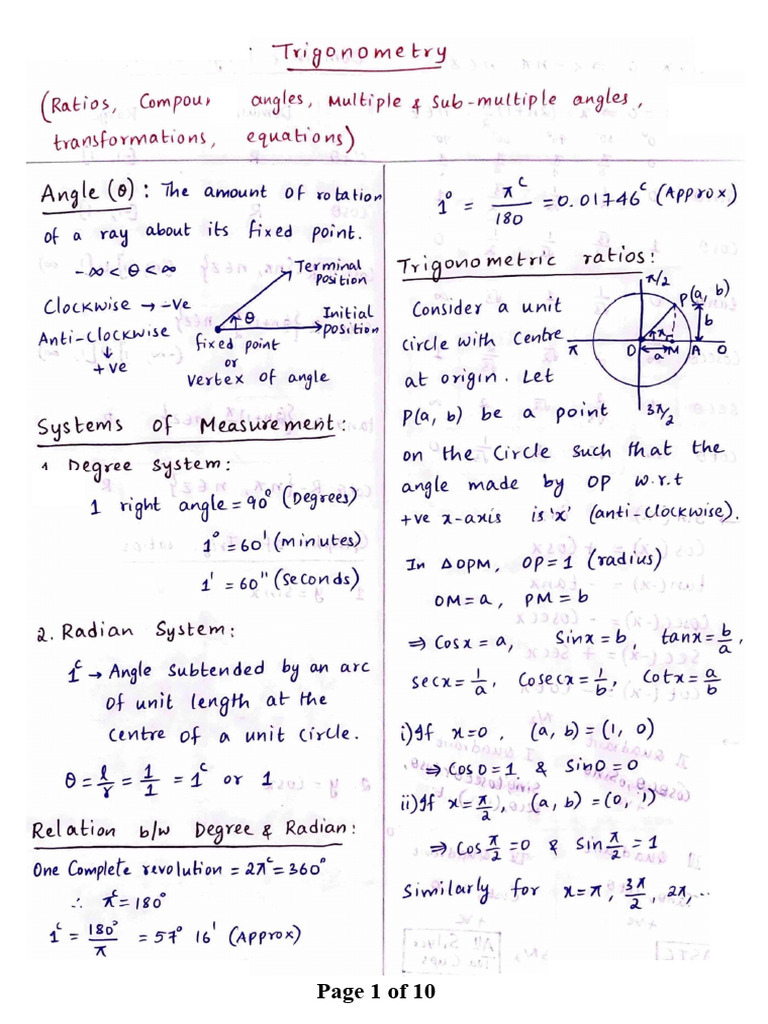 Trigonometry
(Ratios, Compour angles, Multiple & Sub-multiple angles,
transformations, equations)
Angle (θ) : The amount of rotation
of a ray about its fixed point.
-∞ < θ < ∞
Clockwise → -ve
Anti-Clockwise
↓
+ve
Terminal
position
θ
Initial
position
fixed point
or
Vertex of angle
Systems of Measurement:
1 Degree System:
1 right angle = 90° (Degrees)
1° = 60' (minutes)
1' = 60" (Seconds)
2. Radian System:
1ᶜ → Angle subtended by an arc
of unit length at the
centre of a unit circle.
θ = l/r = 1/1 = 1ᶜ or 1
Relation b/w Degree & Radian:
One Complete revolution = 2πᶜ = 360°
∴ πᶜ = 180°
1ᶜ = 180°/π = 57° 16' (Approx)
1° = πᶜ/180 = 0.01746ᶜ (Approx)
Trigonometric ratios:
Consider a unit
circle with Centre
at origin. Let
P(a, b) be a point
π/2
P(a, b)
b
x
π
O
a
M
A
0
3π/2
on the Circle such that the
angle made by OP w.r.t
+ve x-axis is 'x' (anti-clockwise).
In ΔOPM, OP = 1 (radius)
OM = a, PM = b
⇒ Cosx = a, Sinx = b, tanx = b/a,
secx = 1/a, Cosecx = 1/b, Cotx = a/b
i) If x=0, (a, b) = (1, 0)
⇒ Cos0 = 1 & Sin0 = 0
ii) If x = π/2, (a, b) = (0, 1)
⇒ Cos π/2 = 0 & Sin π/2 = 1
Similarly for x = π, 3π/2, 2π, ...
Page 1 of 10